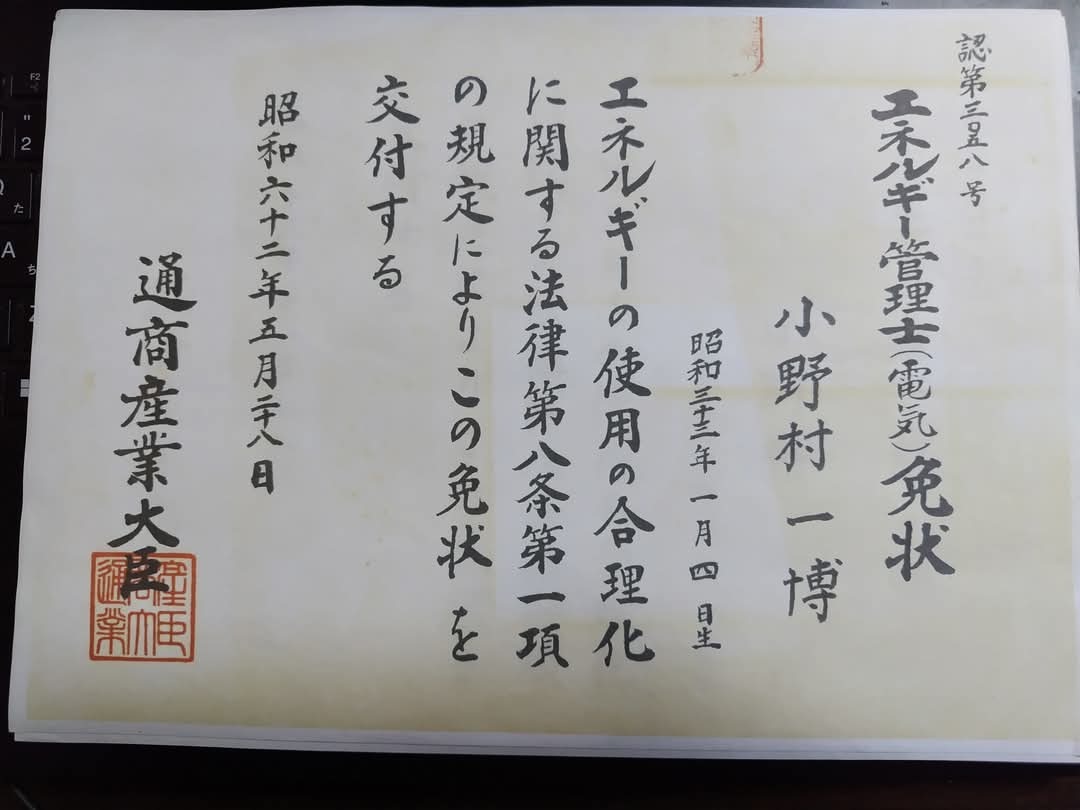 認第三〇五八号
エネルギー管理士(電気)免状
小野村一博
昭和三十三年一月四日生
エネルギーの使用の合理化
に関する法律第八条第一項
の規定によりこの免状を
交付する
昭和六十二年五月二十八日
通商産業大臣
通商産
業大臣
F2
"
2
た
A
ち